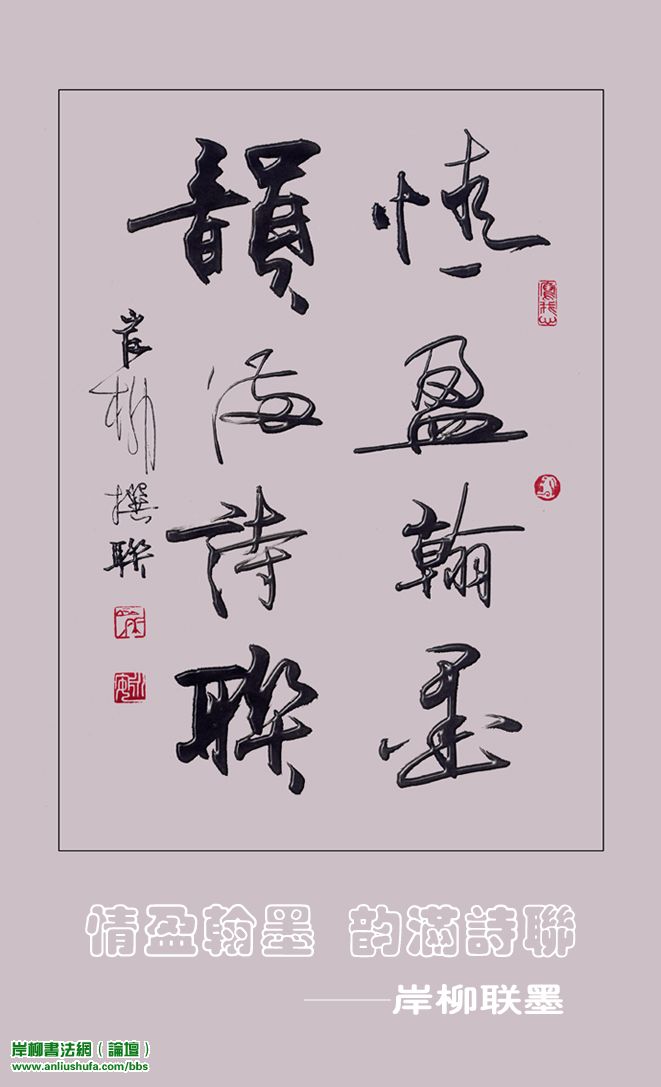 情盈翰墨
韻滿詩聯
岸柳撰聯
情盈翰墨 韵滿詩聯
——岸柳联墨
岸柳書法網（論壇）
www.anliushufa.com/bbs